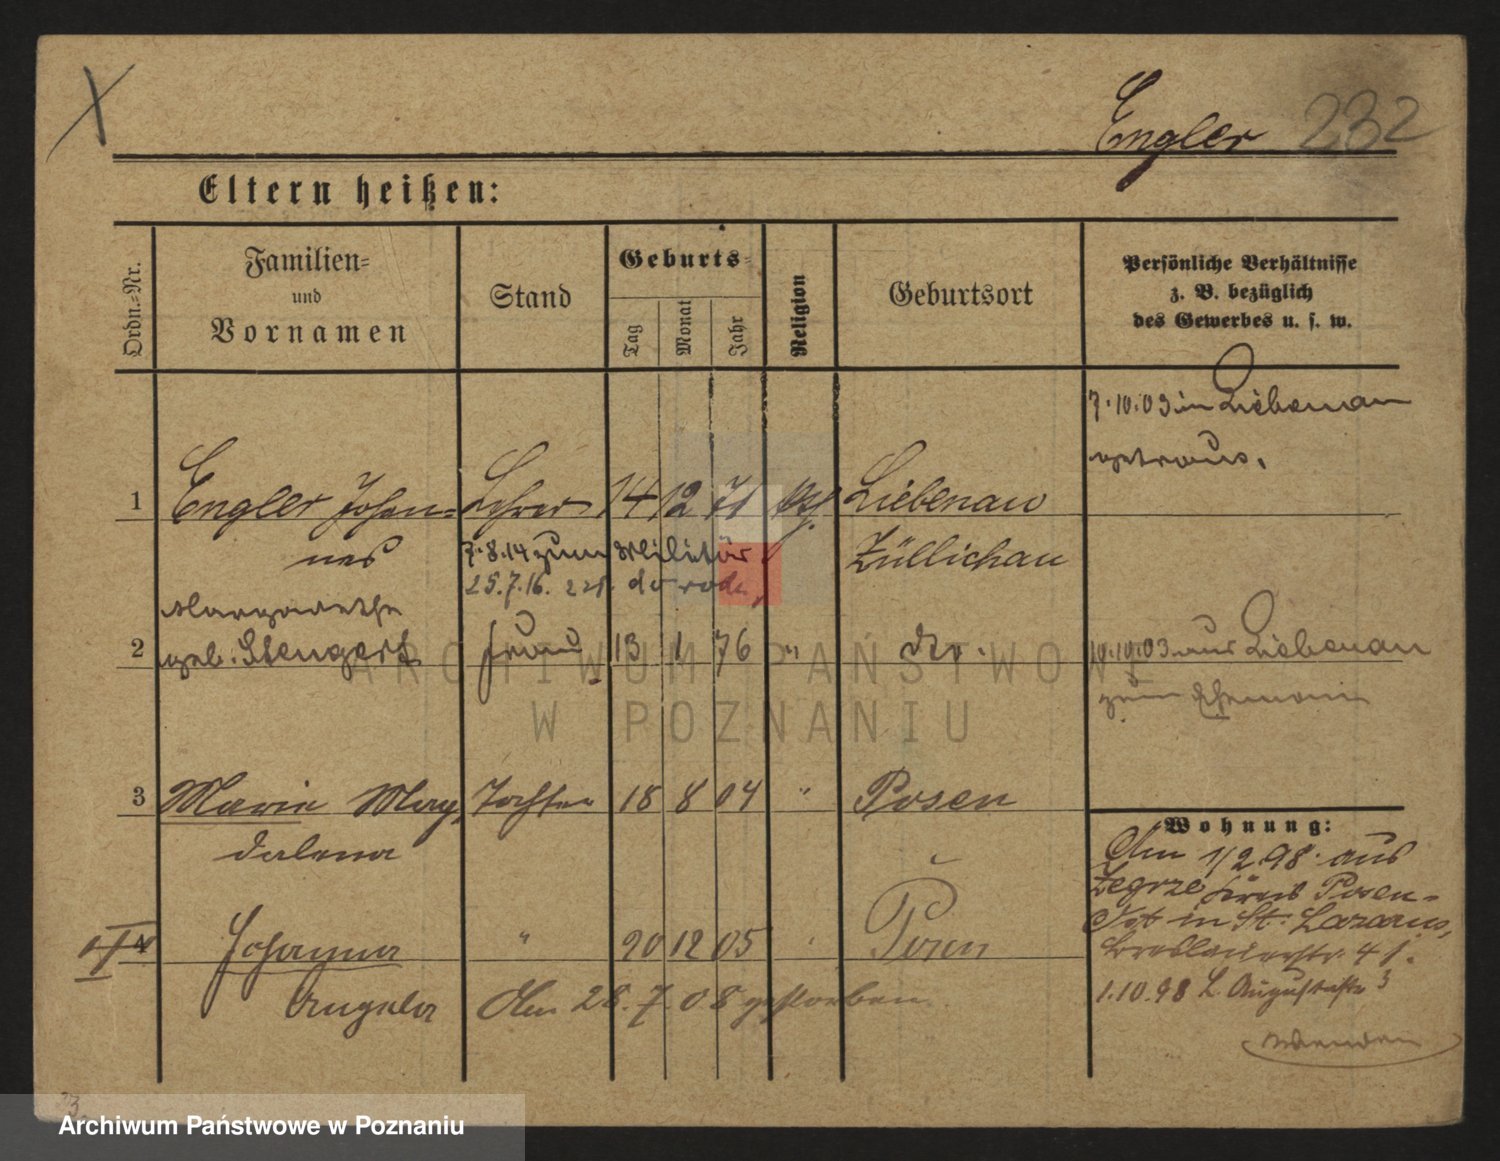 X
Engler 232
Eltern heißen:
Ordn.-Nr.
Familien-
und
Vornamen
Stand
Geburts-
Tag
Monat
Jahr
Religion
Geburtsort
Persönliche Verhältnisse
z. B. bezüglich
des Gewerbes u. s. w.
7.10.03 in Liebenau
getraut.
1 Engler Johan- Lehrer 14 12 71 Liebenau
nes
7.8.14 zum Militär
Züllichau
25.7.16.
Margarethe
2 geb. Stengert Frau 13 1 76 " do. 10.03 aus Liebenau
zum Ehemann
ARCHIWUM PAŃSTWOWE
W POZNANIU
3 Maria Mag- Tochter 18 8 04 " Posen
dalena
Wohnung:
Am 1/2.98. aus
Zegrze Kreis Posen-
Ost in St. Lazarus,
Breslauerstr. 4
1.10.98 L. Augustastr 3
4 Johanna " 20 12 05 " Posen
Angela Am 28.7.08 gestorben.
Archiwum Państwowe w Poznaniu